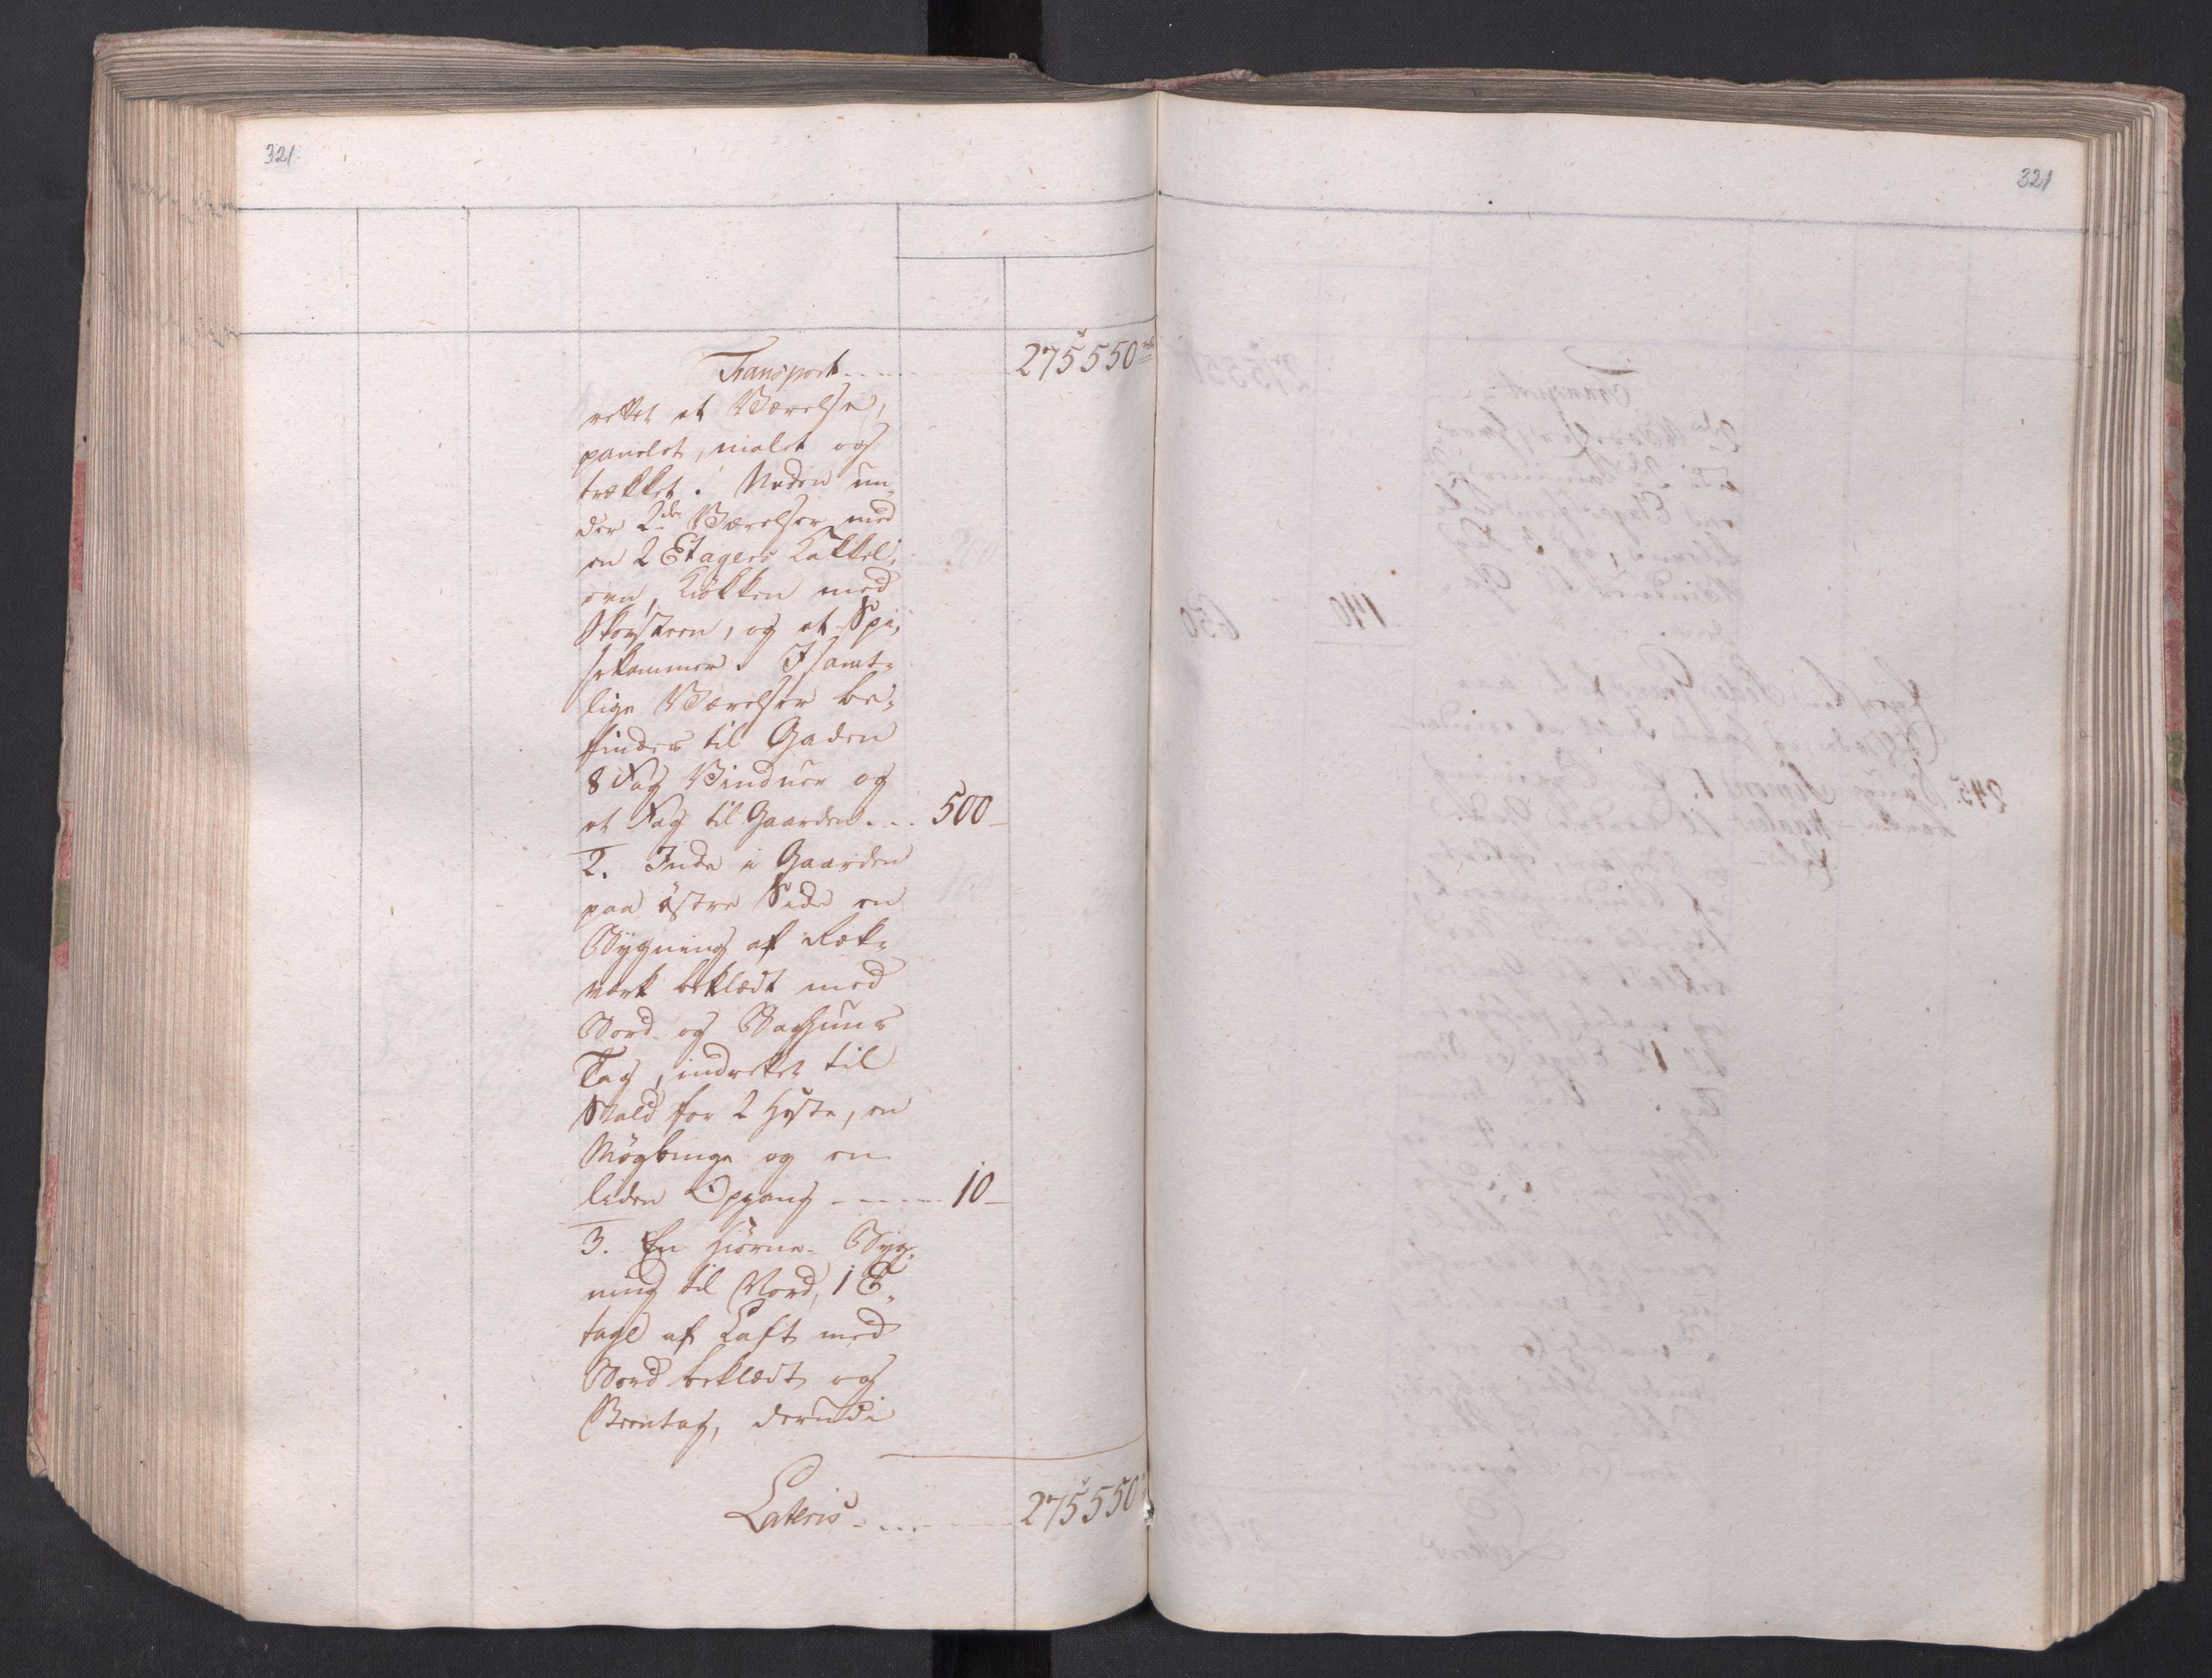 321
321
Transport - - - - 275550 rd
rettet et Værelse,
panelet, malet og
trækket. Neden un-
der 2de Værelser med
en 2 Etagers Kakkel-
ovn, Kiökken med
Skorsteen, og et Spi-
sekammer. I samt-
lige Værelser be-
findes til Gaden
8 Fag Vinduer og
et Fag til Gaarden - - - 500 -
2. Inde i Gaarden
paa östre Side en
Bygning af Rek-
værk beklædt med
Bord og Baghuns
Tag, indrettet til
Stald for 2 Heste, en
Mögbinge og en
liden Opgang - - - - 10 -
3. En Hiörne-Byg-
ning til Nord, 1 E-
tage af Laft med
Bord beklædt og
Steentag, derudi
Lateris - - - - 275550